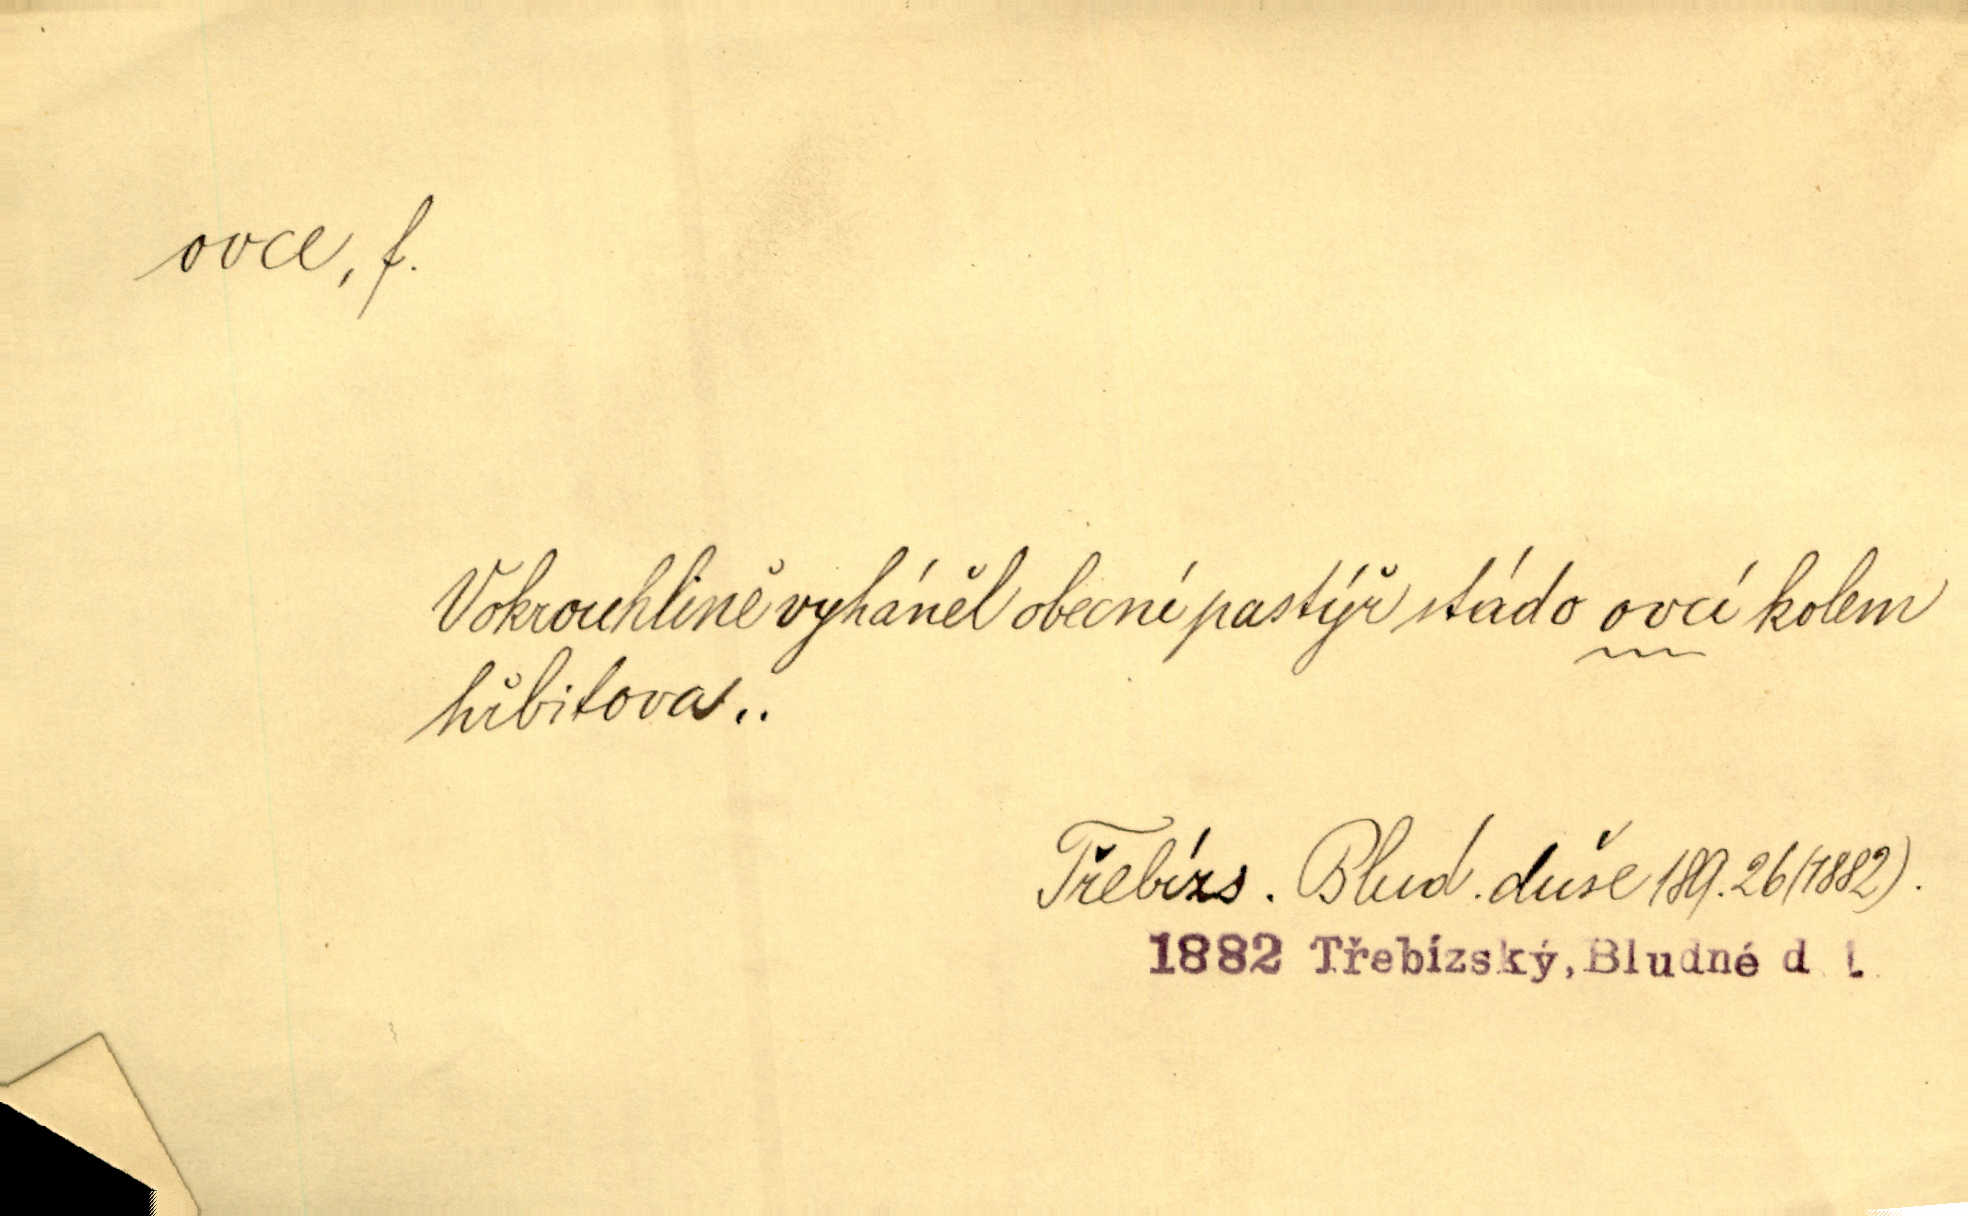 ovce, f.
Vokrouhlině vyháněl obecní pastýř stádo ovcí kolem
hřbitova..
Třebízs. Blud. duše 189.26 (1882).
1882 Třebízský, Bludné d